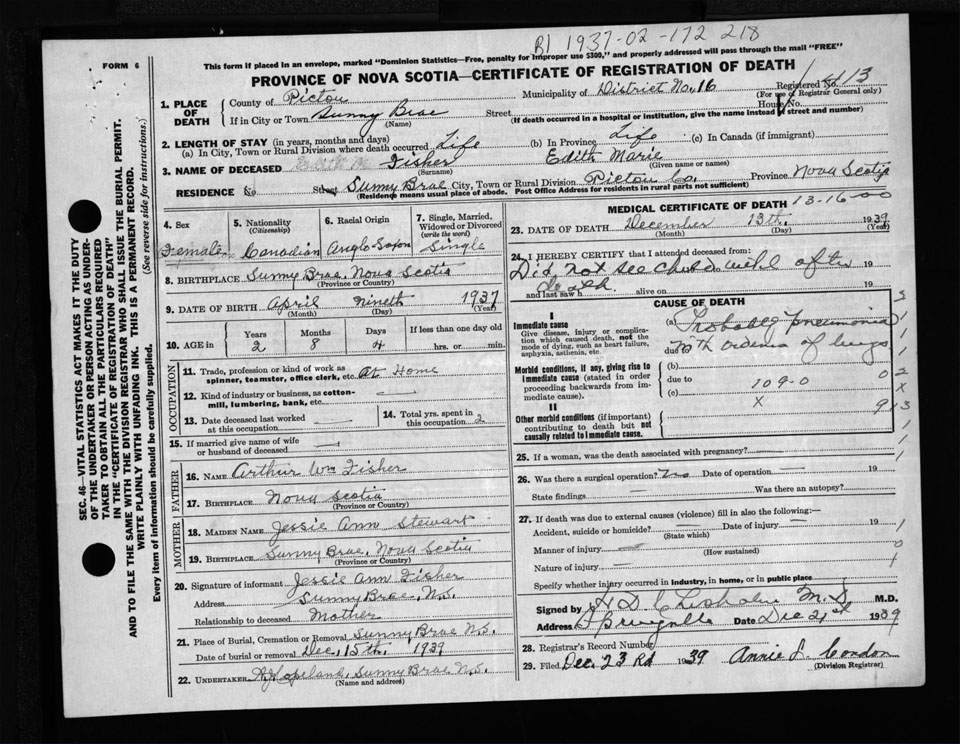 B1 1937-02-172218
This form if placed in an envelope, marked "Dominion Statistics—Free, penalty for improper use $300," and properly addressed will pass through the mail "FREE"
FORM 6
PROVINCE OF NOVA SCOTIA—CERTIFICATE OF REGISTRATION OF DEATH
SEC. 46—VITAL STATISTICS ACT MAKES IT THE DUTY
OF THE UNDERTAKER OR PERSON ACTING AS UNDER-
TAKER TO OBTAIN ALL THE PARTICULARS REQUIRED
IN THE "CERTIFICATE OF REGISTRATION OF DEATH"
AND TO FILE THE SAME WITH THE DIVISION REGISTRAR WHO SHALL ISSUE THE BURIAL PERMIT.
WRITE PLAINLY WITH UNFADING INK. THIS IS A PERMANENT RECORD.
Every item of information should be carefully supplied. (See reverse side for instructions.)
1. PLACE OF DEATH
County of Pictou Municipality of District No. 16 Registered No. 113
(For use of Registrar General only)
If in City or Town Sunny Brae Street House No.
(Name) (If death occurred in a hospital or institution, give the name instead of street and number)
2. LENGTH OF STAY (in years, months and days)
(a) In City, Town or Rural Division where death occurred Life (b) In Province Life (c) In Canada (if immigrant)
3. NAME OF DECEASED Fisher Edith Marie
(Surname) (Given name or names)
RESIDENCE No Street Sunny Brae City, Town or Rural Division Pictou Co. Province Nova Scotia
(Residence means usual place of abode. Post Office Address for residents in rural parts not sufficient)
4. Sex 5. Nationality (Citizenship) 6. Racial Origin 7. Single, Married, Widowed or Divorced (write the word)
Female Canadian Anglo-Saxon Single
8. BIRTHPLACE Sunny Brae, Nova Scotia
(Province or Country)
9. DATE OF BIRTH April Nineth 1937
(Month) (Day) (Year)
10. AGE in Years Months Days If less than one day old
2 8 4 hrs. or min.
OCCUPATION
11. Trade, profession or kind of work as
spinner, teamster, office clerk, etc. At Home
12. Kind of industry or business, as cotton-
mill, lumbering, bank, etc. —
13. Date deceased last worked at this occupation — 14. Total yrs. spent in this occupation 2
15. If married give name of wife
or husband of deceased —
FATHER
16. NAME Arthur Wm Fisher
17. BIRTHPLACE Nova Scotia
MOTHER
18. MAIDEN NAME Jessie Ann Stewart
19. BIRTHPLACE Sunny Brae, Nova Scotia
(Province or Country)
20. Signature of informant Jessie Ann Fisher
Address Sunny Brae, N.S.
Relationship to deceased Mother
21. Place of Burial, Cremation or Removal Sunny Brae N.S.
Date of burial or removal Dec, 15th, 1939
22. UNDERTAKER Copeland, Sunny Brae N.S.
(Name and address)
MEDICAL CERTIFICATE OF DEATH 13-16-00
23. DATE OF DEATH December 13th, 1939
(Month) (Day) (Year)
24. I HEREBY CERTIFY that I attended deceased from:
Did not see child until after 19
death
and last saw h alive on 19
CAUSE OF DEATH
I
Immediate cause
Give disease, injury or complica-
tion which caused death, not the
mode of dying, such as heart failure,
asphyxia, asthenia, etc.
(a) Probably pneumonia
due to with oedema of lungs
Morbid conditions, if any, giving rise to
immediate cause (stated in order
proceeding backwards from im-
mediate cause).
(b)
due to 109-0
(c) X
II
Other morbid conditions (if important)
contributing to death but not
causally related to immediate cause.
25. If a woman, was the death associated with pregnancy? —
26. Was there a surgical operation? No Date of operation — 19
State findings — Was there an autopsy? —
27. If death was due to external causes (violence) fill in also the following:—
Accident, suicide or homicide? — Date of injury — 19
(State which)
Manner of injury —
(How sustained)
Nature of injury —
Specify whether injury occurred in industry, in home, or in public place
Signed by H D Chisholm M.D. M.D.
Address Date Dec 21st 1939
28. Registrar's Record Number
29. Filed Dec. 23 Rd 1939 Annie L. Condon
(Division Registrar)